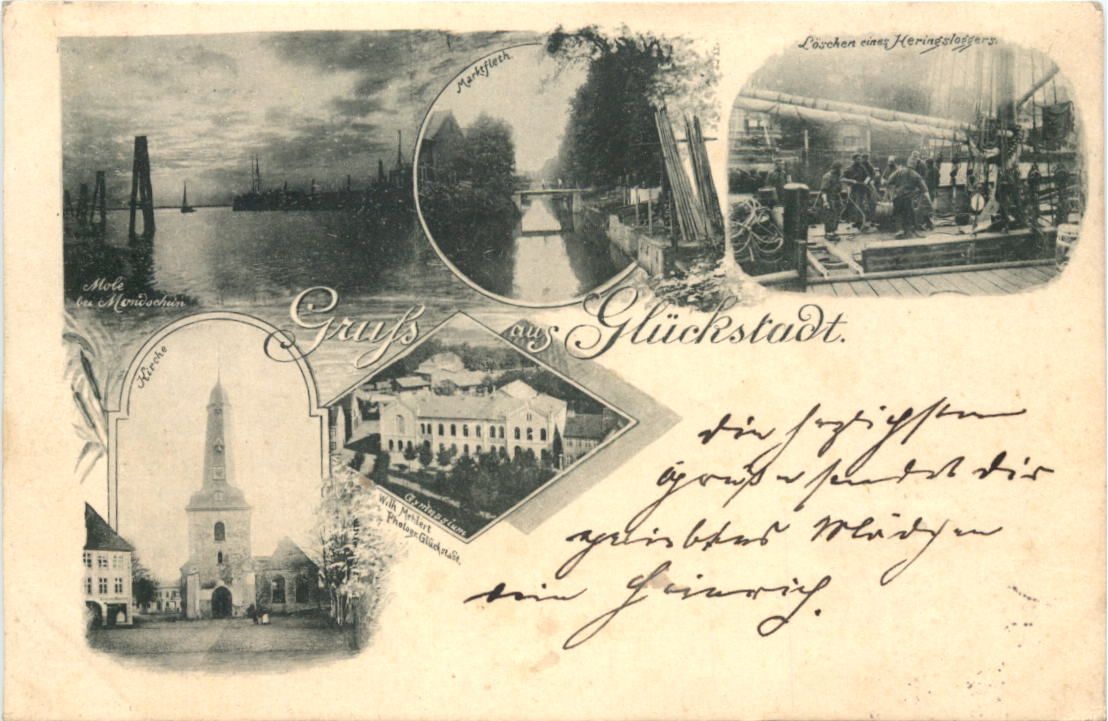 Mole
bei Mondschein
Marktfleth.
Löschen eines Heringsloggers.
Gruß aus Glückstadt.
Kirche
Gymnasium
Wilh. Mehlert
Photogr. Glückstadt.
die herzlichsten
Grüße sendet dir
geliebtes Mädchen
dein Heinrich.